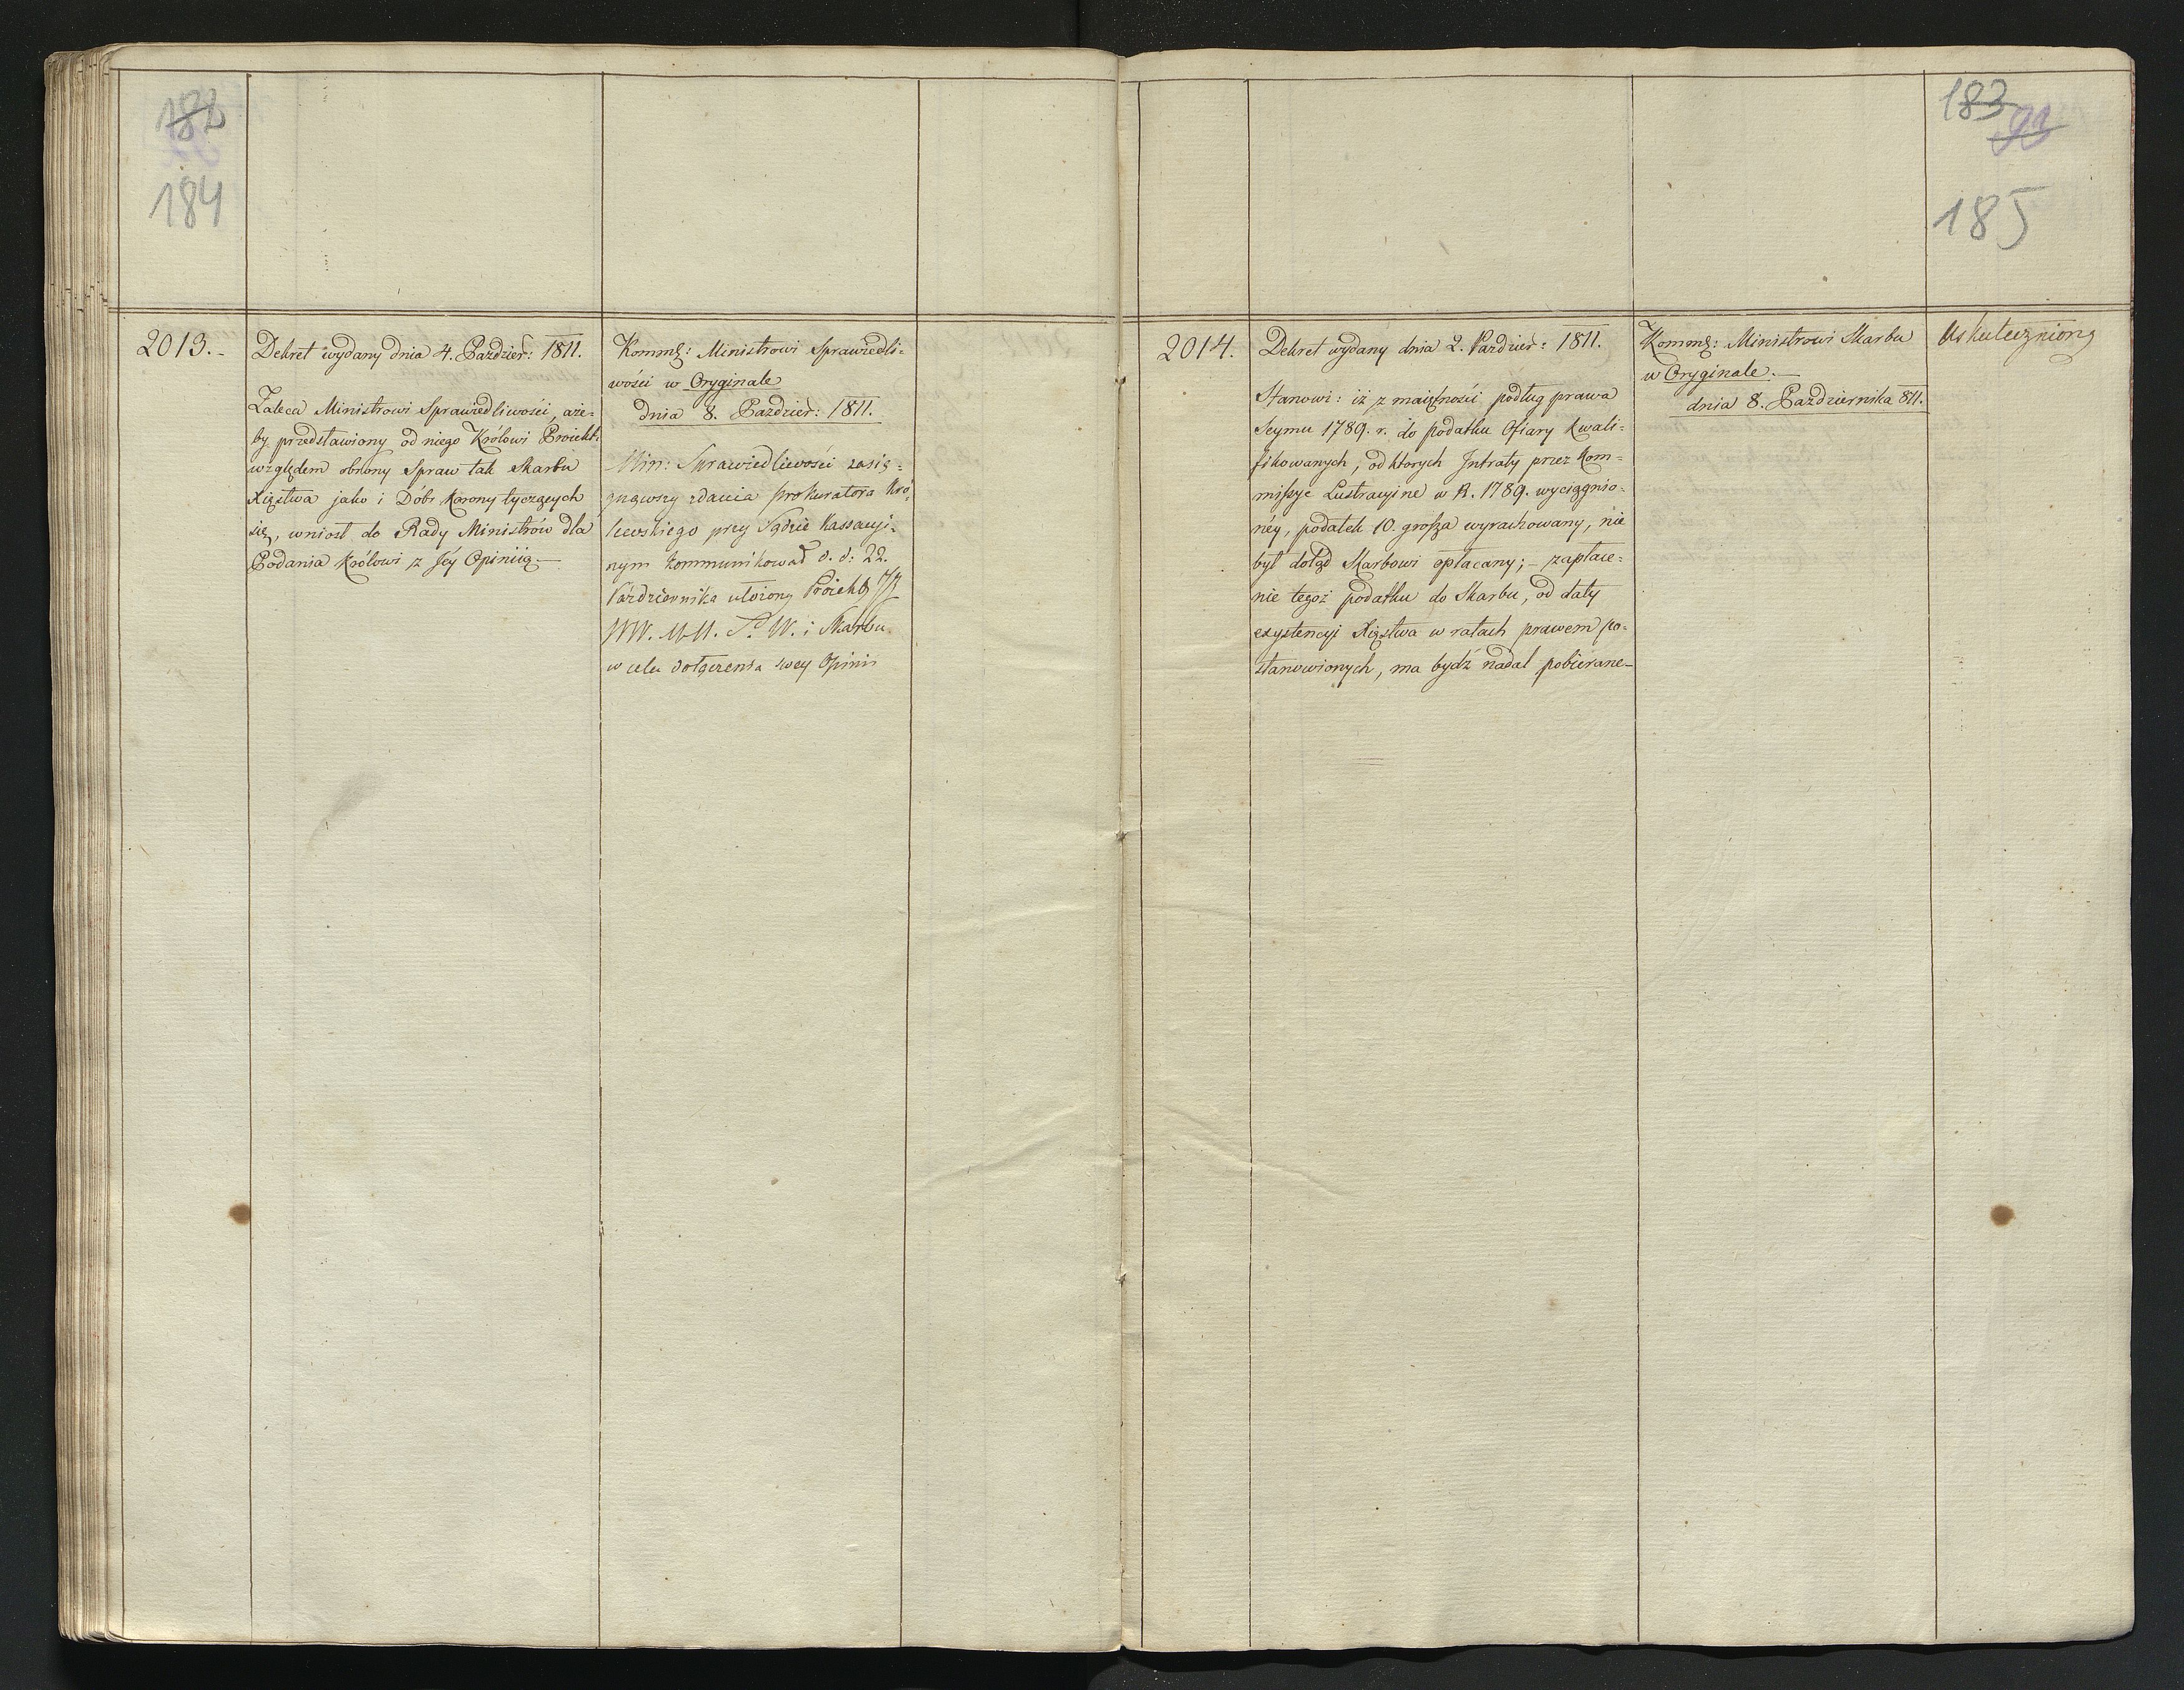 182
184
2013.-
Dekret wydany dnia 4. Paździer: 1811.
Zaleca Ministrowi Sprawiedliwości, aże-
by przedstawiony od niego Królowi Proiekt
względem obrony Spraw tak Skarbu
Xięstwa jako i Dóbr Korony tyczących
się, wniosł do Rady Ministrów dla
Podania Królowi z Jéy Opiniią.-
Ministrowi Sprawiedli-
wości w Oryginale
dnia 8. Paździer: 1811.
Min: Sprawiedliwości zasię-
gnąwszy zdania prokuratora Kró-
lewskiego przy Sądzie Kassacyj-
nym kommunikował d. d: 22.
Października ułożony Proiekt
JWW. MM. S. W. i Skarbu
w celu dołączenia swey Opinii
183
93
185
2014.
Dekret wydany dnia 2. Paździer: 1811.
Stanowi: iż z maiętności podług prawa
Seymu 1789. r. do podatku Ofiary kwali-
fikowanych, od ktorych Jntraty przez Kom-
missye Lustracyine w R. 1789. wyciągnio-
néy, podatek 10. grosza wyrachowany, nie
był dotąd Skarbowi opłacany; - zapłace-
nie tegoż podatku do Skarbu, od daty
exystencyi Xięstwa w ratach prawem po-
stanowionych, ma bydź nadal pobierane-
Ministrowi Skarbu
w Oryginale.-
dnia 8. Października 811.
Uskuteczniony